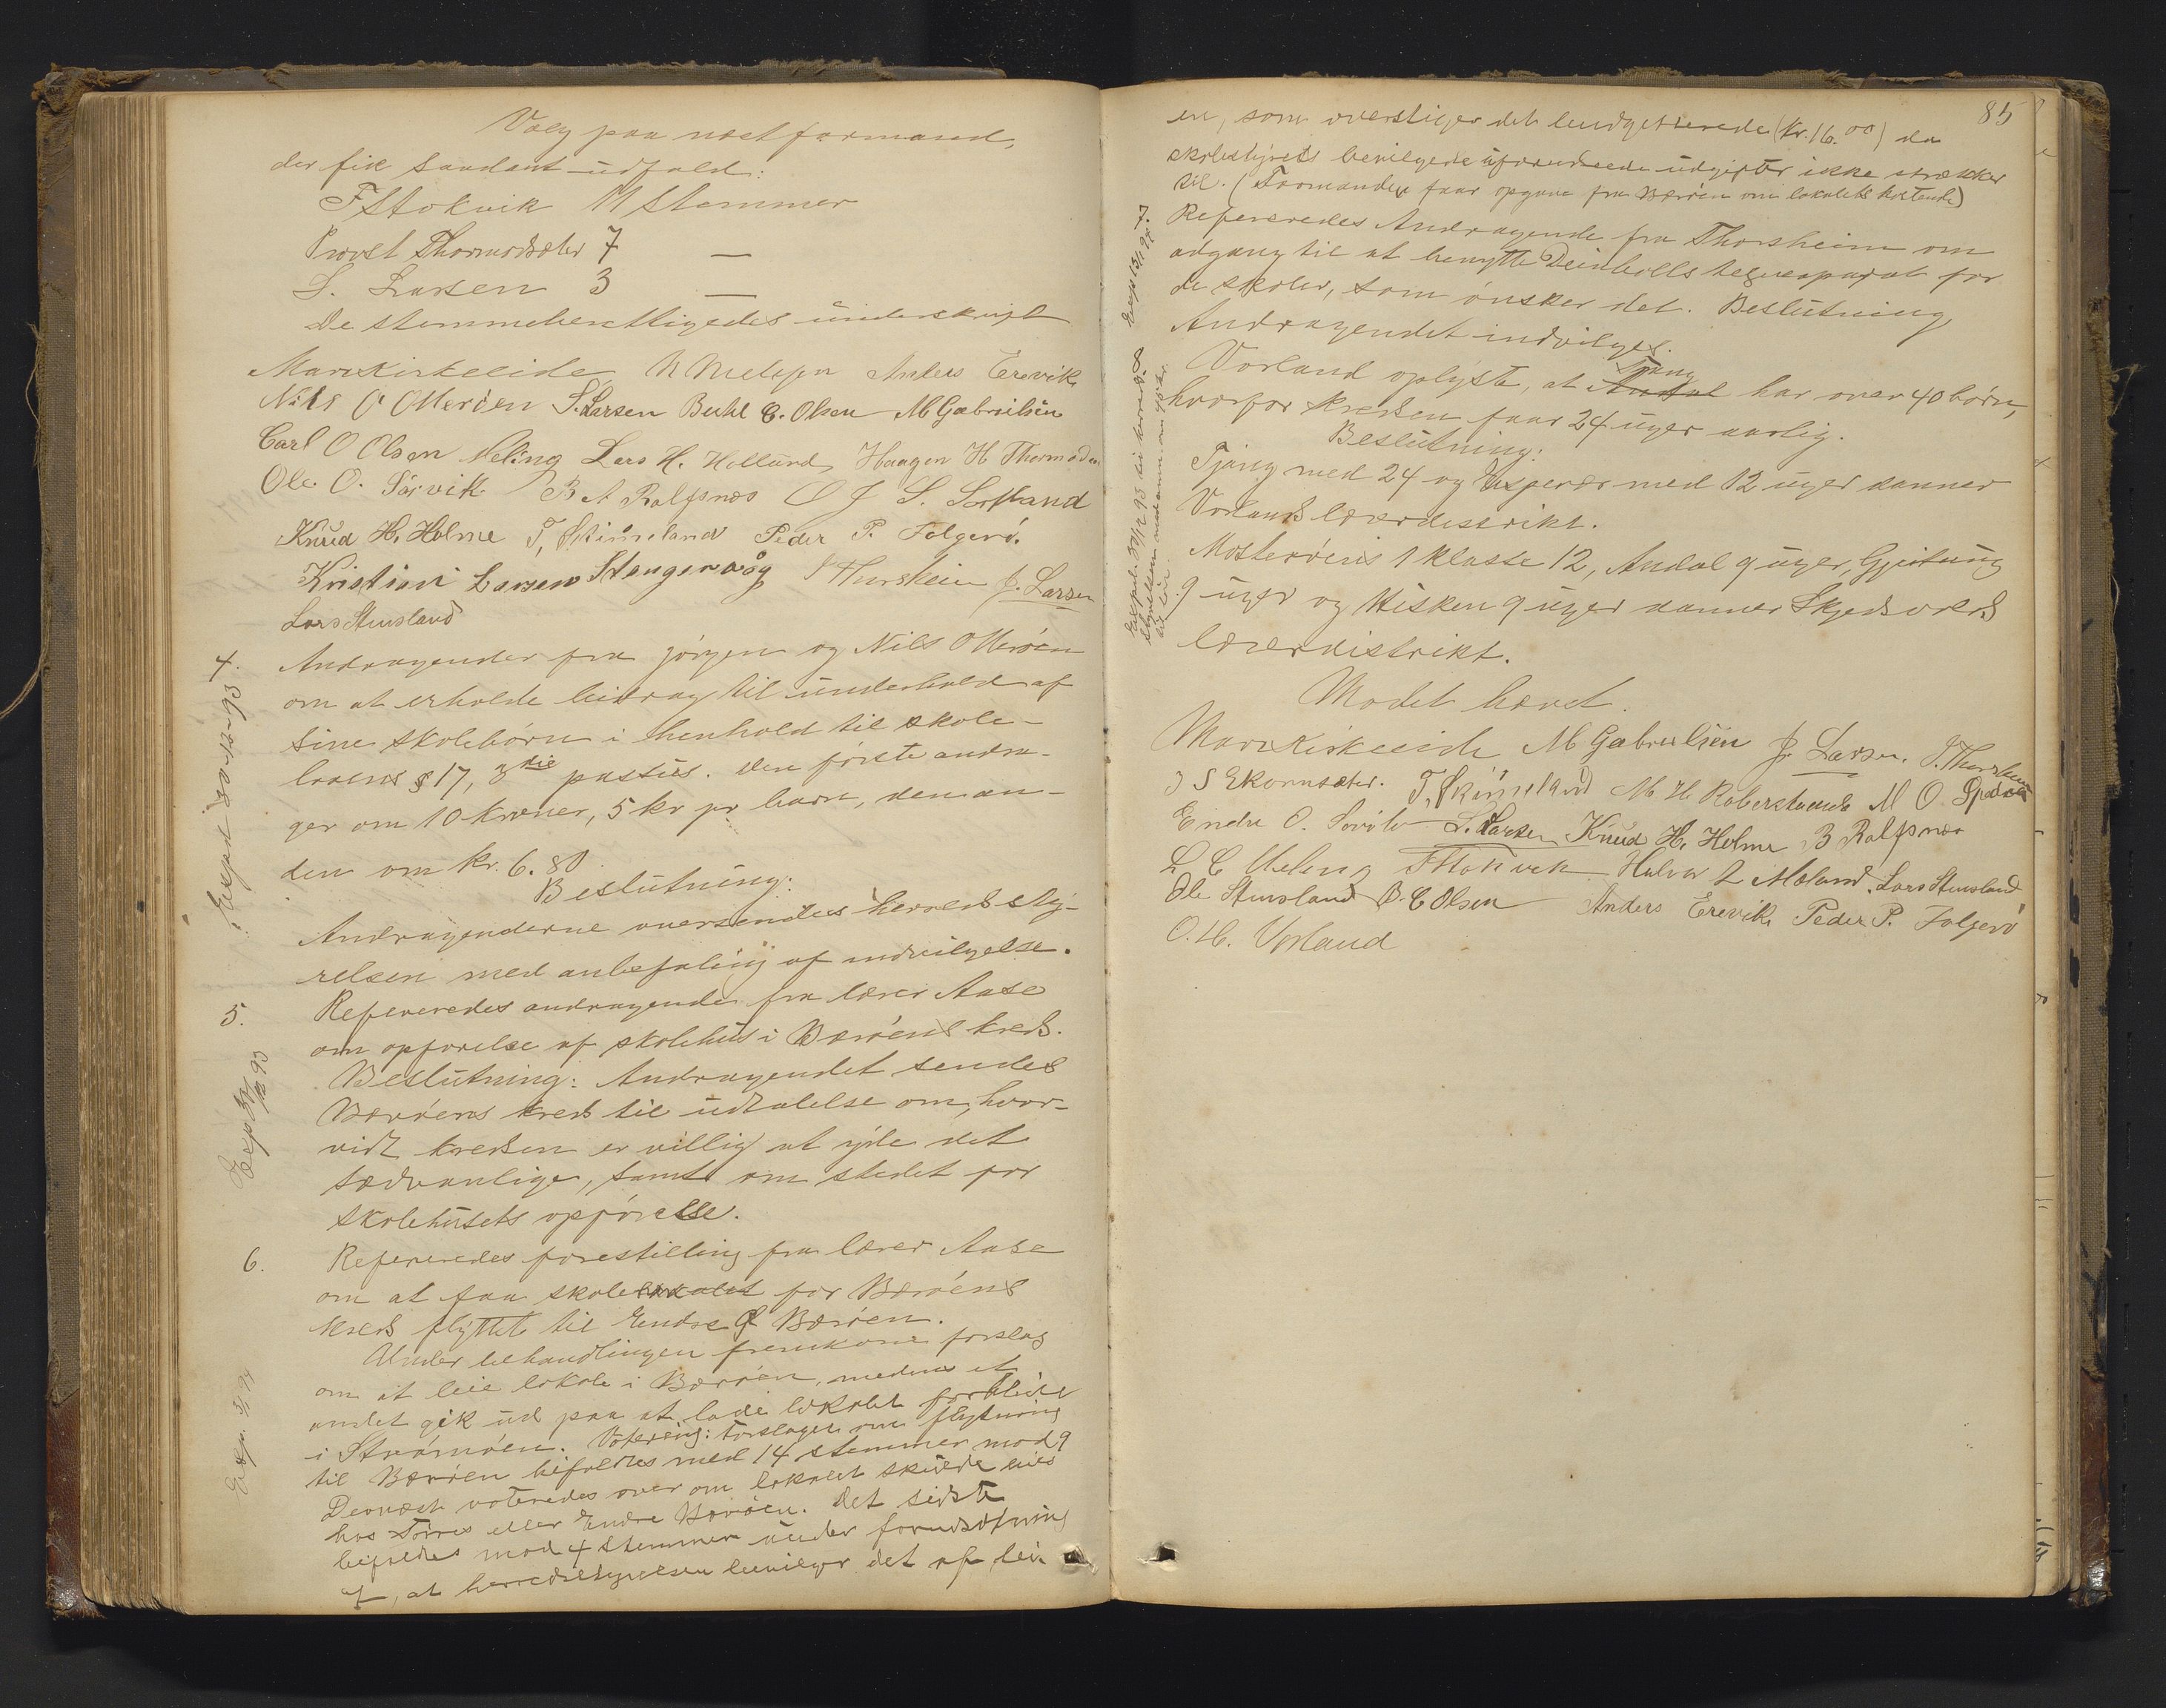 Valg paa næstformand,
der fik saadant udfald:
F Stokvik 11 stemmer
Provst Thormodsæter 7 —
S. Larsen 3 —
De stemmeberettigedes underskrift
Marx Kirkeeide N Nielssen Anders Erevik
Nils O Otterøen S. Larsen Buhl E. Olsen M Gabrielsen
Carl O Olsen Meling Lars H. Hollund, Haagen H Thormodsen
Ole O. Sørvik B A Rolfsnes O J S.
Knud H. Holme T. Skimeland Peder P. Folgerø.
Kristian Larsen Stangeraag Thorsheim J. Larsen
Lars Stusland
4. Andragender fra Jørgen og Nils Otterøen
om at erholde bidrag til underhold af
sine skolebørn i henhold til skole-
lovens § 17, 3die passus. den første andra-
ger om 10 kroner, 5 kr pr barn, den an-
den om kr. 6.80
Beslutning:
Andragenderne oversendes herredssty-
relsen med anbefaling af indvilgelse.
Expd 30-12-93
5. Refereredes andragende fra lærer Aase
om opførelse af skolehus i Bærøens kreds.
Beslutning: Andragendet sendes
Bærøens kreds til udtalelse om, hvor-
vidt kredsen er villig at yde det
sædvanlige, samt om stedet for
skolehusets opførelse.
Exp 31/12 93
6. Refereredes forestilling fra lærer Aase
om at faa skolelokalet for Bærøens
kreds flyttet til Endre Bærøen.
Under behandlingen fremkom forslag
om at leie lokale i Bærøen, medens et
andet gik ud paa at lade lokalet forblive
i Strømøen. Votering: Forslaget om flytning
til Bærøen bifaldtes med 14 stemmer mod 9
Dernæst voteredes over om lokalet skulde leies
hos Tørres eller Endre Bærøen. Det sidste
bifaldtes mod 4 stemmer under forudsætning
af, at herredsstyrelsen bevilger det af lei-
85
en, som overstiger det budgetterede (kr. 16.00) da
skolestyrets bevilgede uforudseede udgifter ikke strækker
til. (Formanden faar opgave fra Bærøen om lokalets kostende)
7. Refereredes Andragende fra Thorsheim om
adgang til at benytte Deinbolls tegneapparat for
de skoler, som ønsker det. Beslutning
Andragendet indvilges.
8. Vorland oplyste, at Tjong har over 40 børn,
hvorfor kredsen faar 24 uger aarlig.
Beslutning:
Tjong med 24 og Espevær med 12 uger danner
Vorlands lærerdistrikt.
Mosterøens 1 klasse 12, Andal 9 uger, Gjeitung
9 uger og Hisken 9 uger danner Skjedsvolds
lærerdistrikt.
Mødet hævet.
Marx Kirkeeide M Gabrielsen J. Larsen. J. Thorsheim
J S Ekornsæter. T. Skimeland M. H Roberstrands M O
Endre O. Sørvik S. Larsen Knud H. Holme B Rolfsnes
L C Meling F Stokvik Halvor L Moland. Lars Stusland,
Ole Stusland B. C Olsen Anders Erevik Peder P. Folgerø
O. H. Vorland